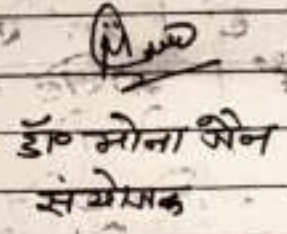 डॉ० मोना जैन
संयोजक